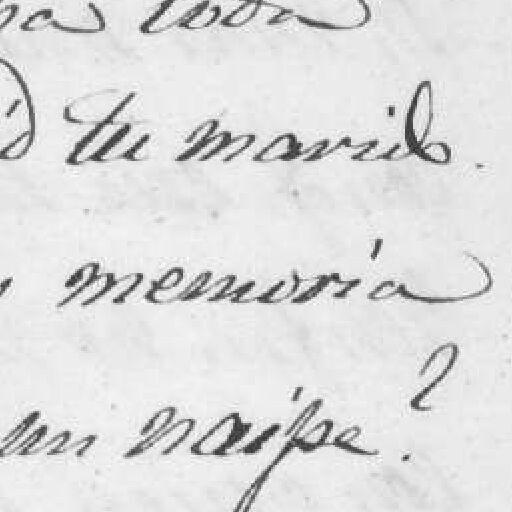 toda
tu marido.
memoria
un naipe?